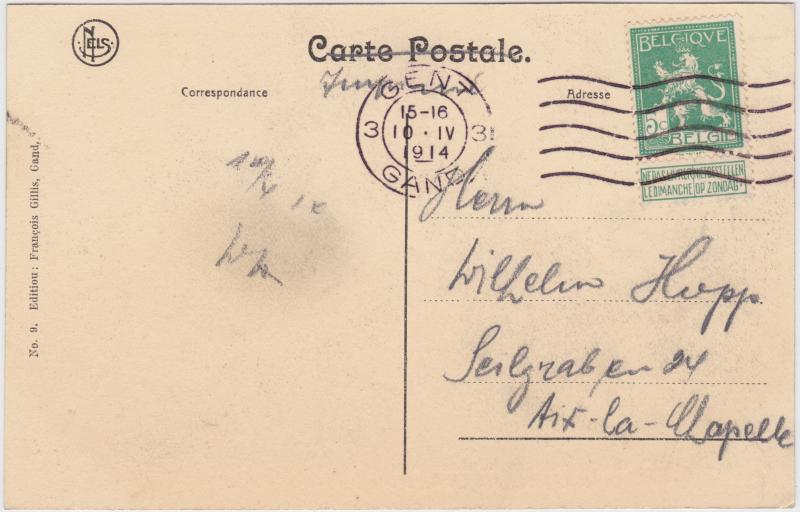 NELS
Carte Postale.
Correspondance
Adresse
BELGIQVE
5c
BELGIË
NE PAS LIVRER LE DIMANCHE
NIET BESTELLEN OP ZONDAG
GENT
15-16
3 10 · IV 3
1914
GAND
Herrn
Wilhelm Hupp
Seilgraben 24
Aix-la-Chapelle
No. 9. Editiou: François Gillis, Gand,